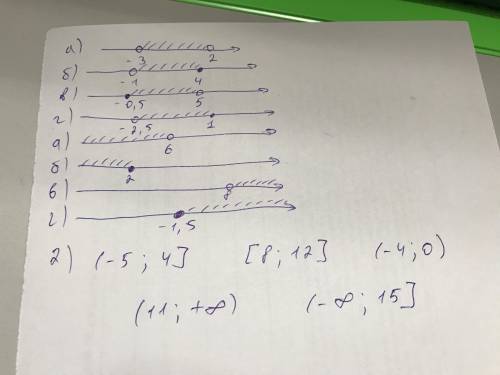 а) -3 2
б) -1 4
в) -0,5 5
г) -2,5 1
а) 6
б) 2
в) 8
г) -1,5
2) (-5; 4] [8; 12] (-4; 0)
(11; +∞) (-∞; 15]